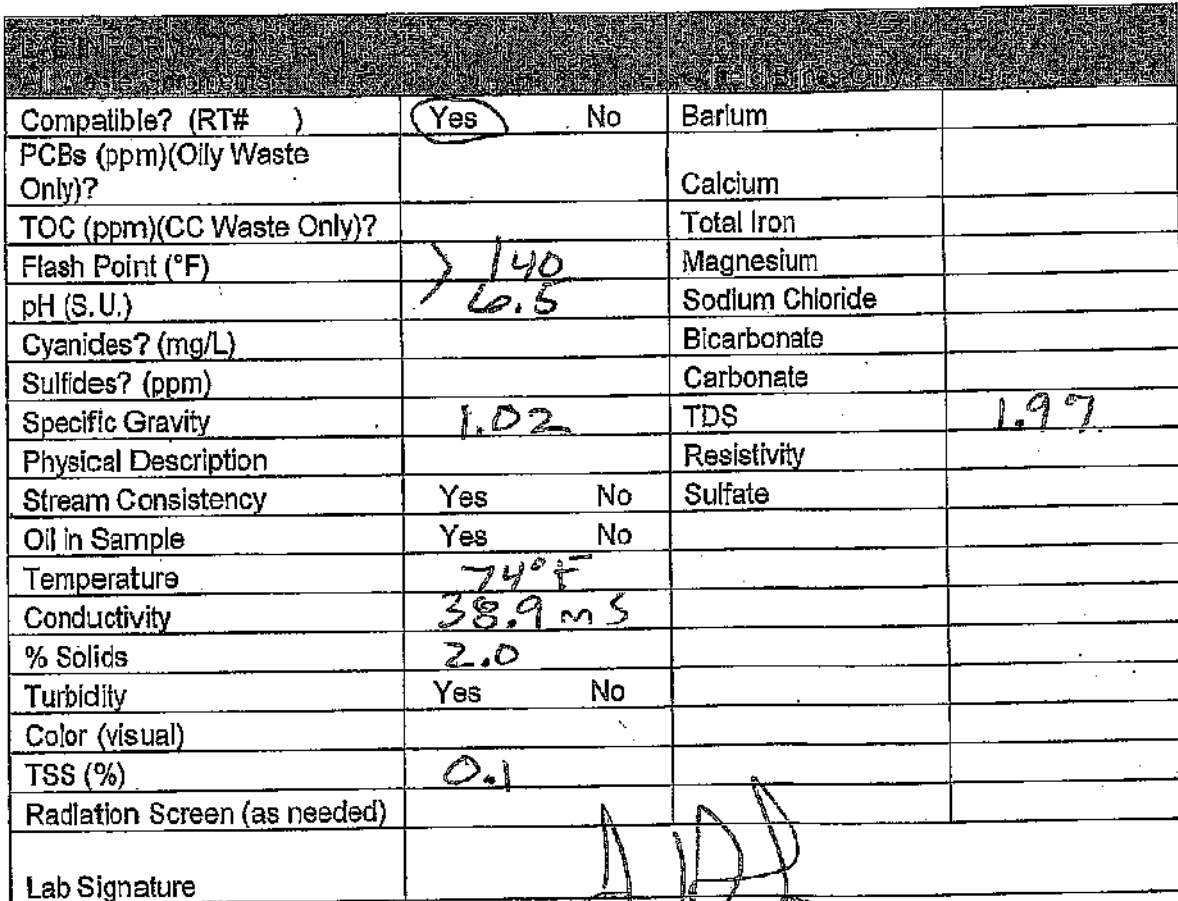 LAB INFORMATION
All Waste Shipments Oilfield Brines Only
Compatible? (RT# ) Yes No Barium
PCBs (ppm)(Oily Waste
Only)? Calcium
TOC (ppm)(CC Waste Only)? Total Iron
Flash Point (°F) > 140 Magnesium
pH (S.U.) 6.5 Sodium Chloride
Cyanides? (mg/L) Bicarbonate
Sulfides? (ppm) Carbonate
Specific Gravity 1.02 TDS 1.97
Physical Description Resistivity
Stream Consistency Yes No Sulfate
Oil in Sample Yes No
Temperature 74°F
Conductivity 38.9 mS
% Solids 2.0
Turbidity Yes No
Color (visual)
TSS (%) 0.1
Radiation Screen (as needed)
Lab Signature